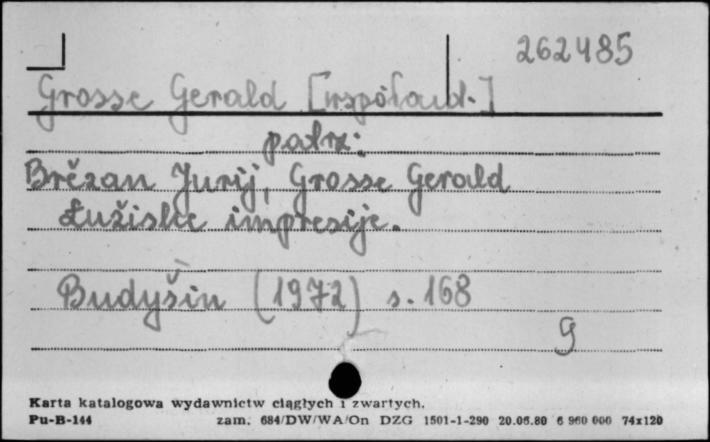 262485
Grosse Gerald [współaut.]
patrz:
Brězan Jurij, Grosse Gerald
Łužiske impresije.
Budyšin (1972) s. 168
g
Karta katalogowa wydawnictw ciągłych i zwartych.
Pu-B-144 zam. 684/DW/WA/On DZG 1501-1-290 20.06.80 6 960 000 74x120